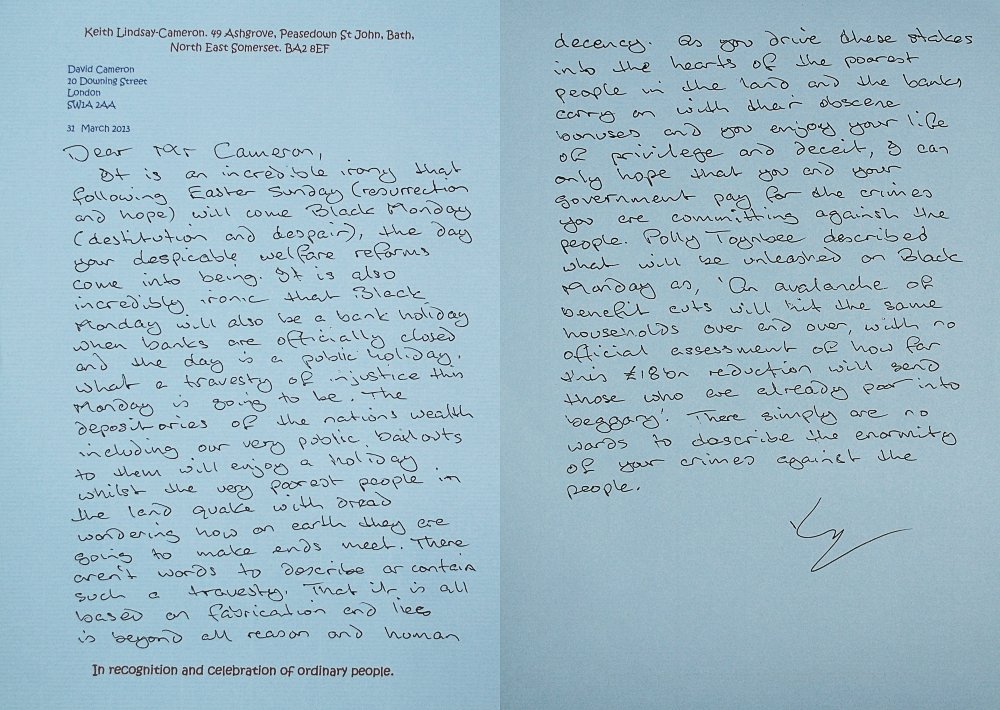 Keith Lindsay-Cameron. 49 Ashgrove, Peasedown St John, Bath,
North East Somerset. BA2 8EF
David Cameron
20 Downing Street
London
SW1A 2AA
31 March 2013
Dear Mr Cameron,
It is an incredible irony that
following Easter Sunday (resurrection
and hope) will come Black Monday
(destitution and despair), the day
your despicable welfare reforms
come into being. It is also
incredibly ironic that Black
Monday will also be a bank holiday
when banks are officially closed
and the day is a public holiday.
What a travesty of injustice this
Monday is going to be. The
depositories of the nations wealth
including our very public bailouts
to them will enjoy a holiday
whilst the very poorest people in
the land quake with dread
wondering how on earth they are
going to make ends meet. There
aren't words to describe or contain
such a travesty. That it is all
based on fabrication and lies
is beyond all reason and human
In recognition and celebration of ordinary people.
decency. As you drive these stakes
into the hearts of the poorest
people in the land and the banks
carry on with their obscene
bonuses and you enjoy your life
of privilege and deceit, I can
only hope that you and your
government pay for the crimes
you are committing against the
people. Polly Toynbee described
what will be unleashed on Black
Monday as, 'An avalanche of
benefit cuts will hit the same
households over and over, with no
official assessment of how far
this £18bn reduction will send
those who are already poor into
beggary.' There simply are no
words to describe the enormity
of your crimes against the
people.